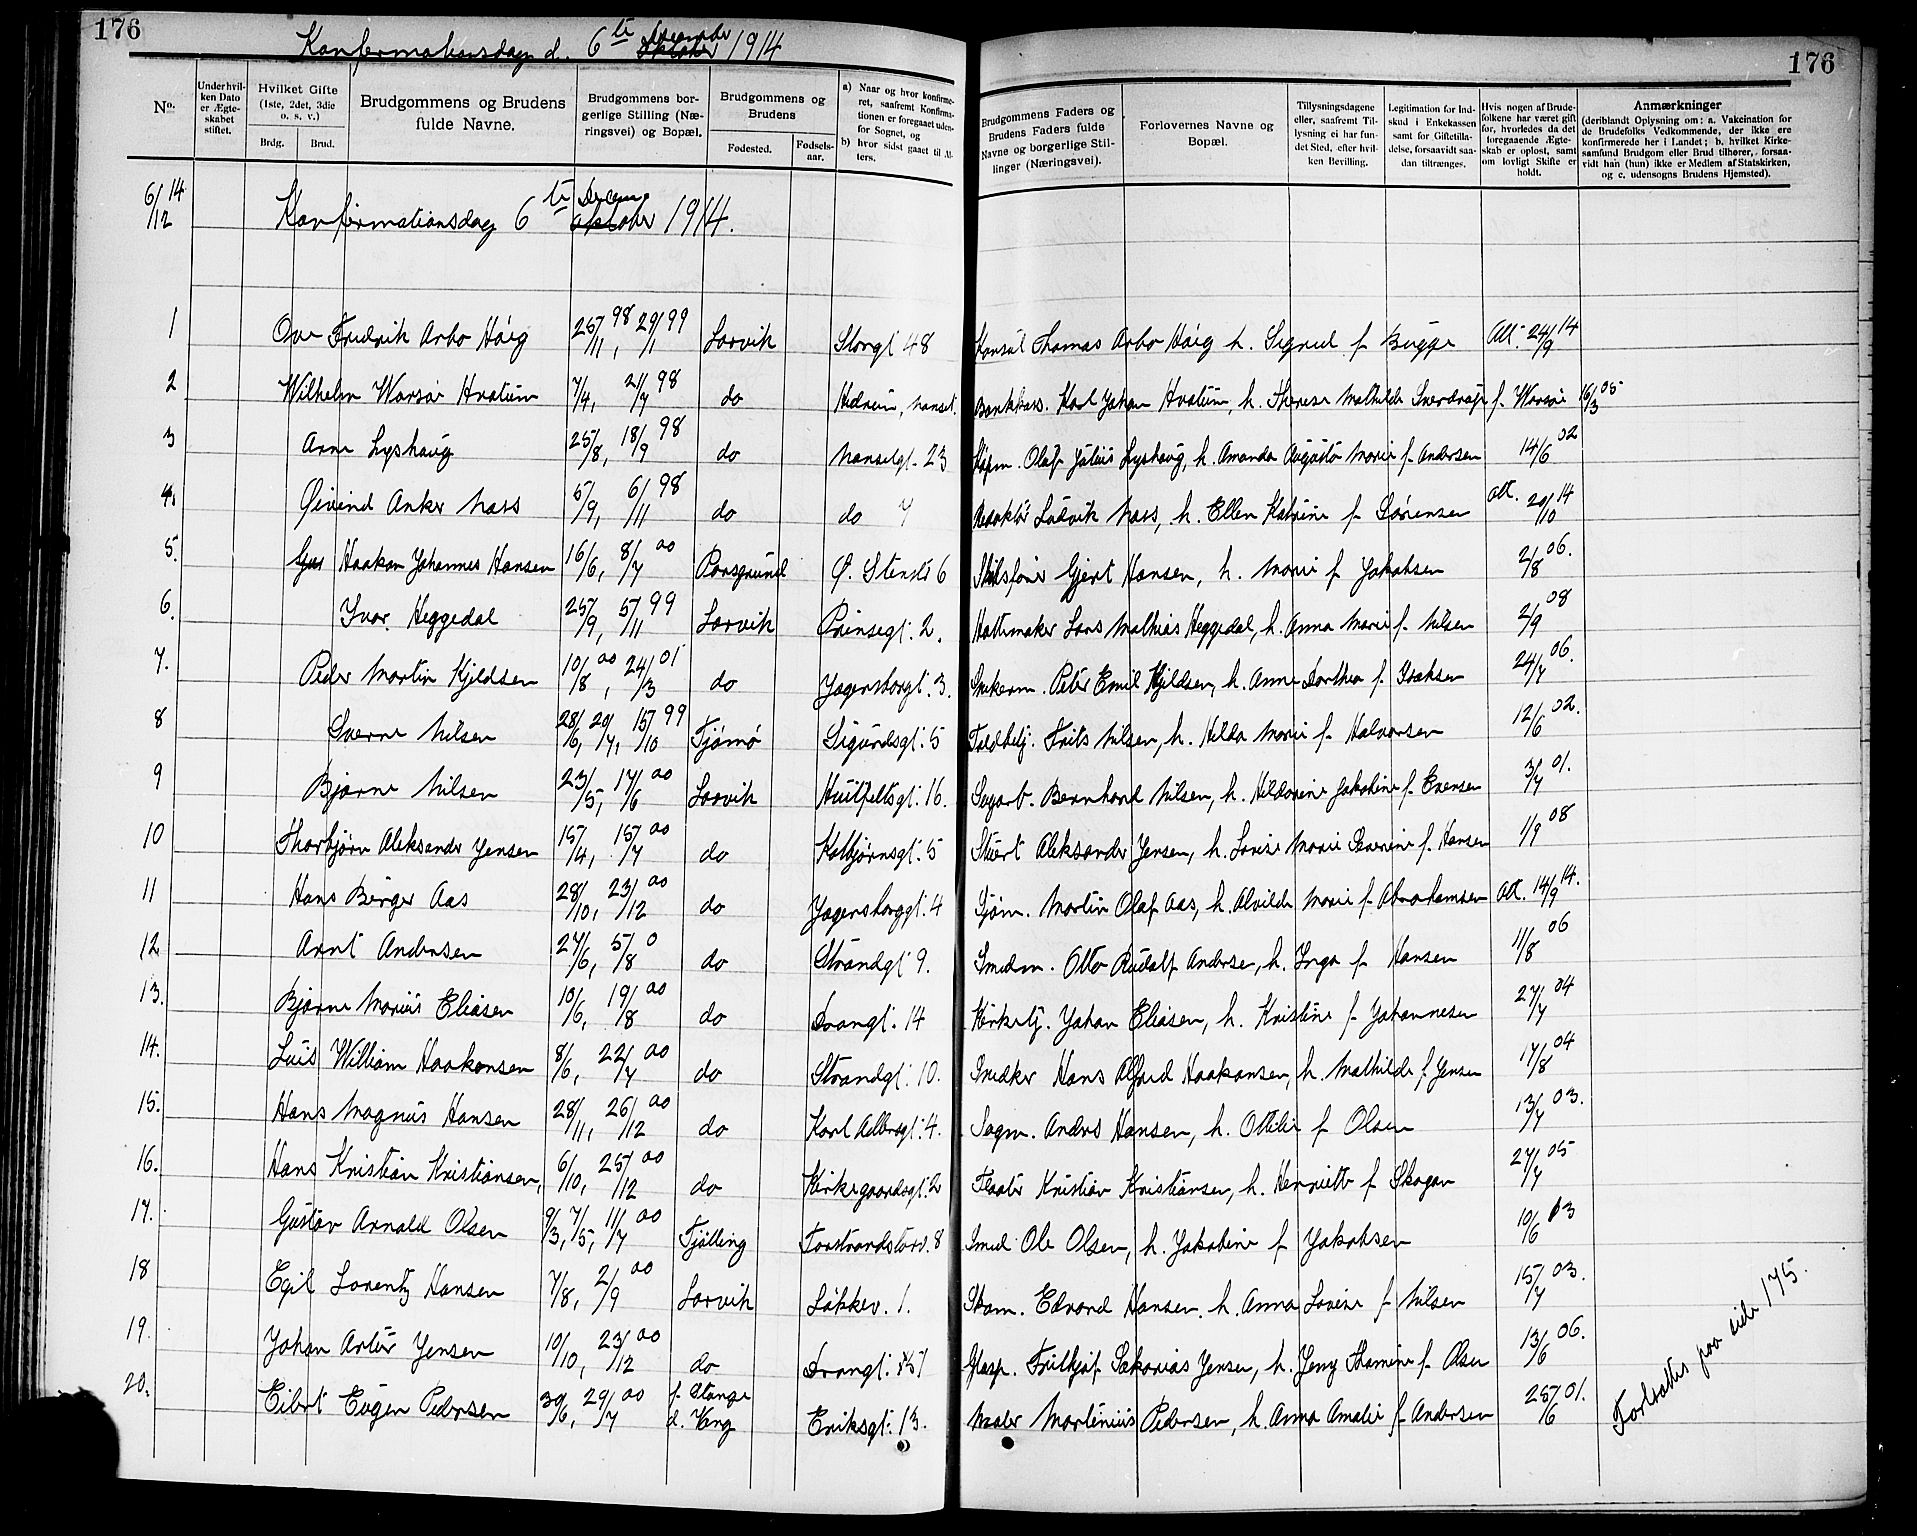 176
Konfirmationsdag d. 6te Oktober December 1914
176
No.
Under hvilken Dato er Ægteskabet stiftet.
Hvilket Gifte (1ste, 2det, 3die o. s. v.)
Brdg.
Brud.
Brudgommens og Brudens fulde Navne.
Brudgommens borgerlige Stilling (Næringsvei) og Bopæl.
Brudgommens og Brudens
Fødested.
Fødselsaar.
a) Naar og hvor konfirmeret, saafremt Konfirmationen er foregaaet udenfor Sognet, og
b) hvor sidst gaaet til Alters.
Brudgommens Faders og Brudens Faders fulde Navne og borgerlige Stillinger (Næringsvei).
Forlovernes Navne og Bopæl.
Tillysningsdagene eller, saafremt Tillysning ei har fundet Sted, efter hvilken Bevilling.
Legitimation for Indskud i Enkekassen samt for Giftetilladelse, forsaavidt saadan tiltrænges.
Hvis nogen af Brudefolkene har været gift før, hvorledes da det foregaaende Ægteskab er opløst, samt om lovligt Skifte er holdt.
Anmærkninger
(deriblandt Oplysning om: a. Vakcination for de Brudefolks Vedkommende, der ikke ere konfirmerede her i Landet; b. hvilket Kirkesamfund Brudgom eller Brud tilhører, forsaavidt han (hun) ikke er Medlem af Statskirken, og c. udensogns Brudens Hjemsted).
6/12 14 Konfirmationsdag 6te oktober Decem 1914.
1 Ove Fredrik Arbo Høeg 25/11 98, 29/1 99 Larvik Storgt 48 Konsul Thomas Arbo Høeg h. Sigrid f Bugge Att. 24/9 14
2 Wilhelm Warsøe Hvatum 7/4, 21/7 98 do Hedrum, Nanset. Bankkass. Karl Johan Hvatum, h. Therese Mathilde Sverdrup f. Warsøe 16/3 05
3 Arne Lyshaug 25/8, 18/9 98 do Nansetgt. 23 Kjøpm. Olaf Julius Lyshaug, h. Amanda Augusta Marie f. Andersen 14/6 02
4. Øivind Anker Næss 5/9, 6/11 98 do do 7 Redaktør Ludvik Næss, h. Ellen Katrine f Sørensen Att. 20/10 14
5. Haakon Johannes Hansen 16/6, 8/7 00 Porsgrund Ø. Stenst 6 Skibsfører Gjert Hansen, h. Marie f Jakobsen 2/8 06.
6. Ivar Heggedal 25/9, 5/11 99 Larvik Prinsegt. 2. Hattemaker Lars Mathias Heggedal, h. Anna Marie f. Nilsen 2/9 08
7. Peder Martin Kjeldsen 10/8 00, 24/3 01 do Jegersborgt. 3. Snekerm. Peter Emil Kjeldsen, h. Anne Dorthea f. Isaksen 24/7 06.
8 Sverre Nilsen 28/6, 20/7, 15/10 99 Tjømø Sigurdsgt. 5 Toldbetj. Frits Nilsen, h. Hilda Marie f. Halvorsen 12/6 02.
9 Bjarne Nilsen 23/5, 17/6 00 Larvik Huitfeltsgt. 16. Sagarb. Bernhard Nilsen, h. Hildarine Jakobine f. Evensen 3/7 01.
10 Thorbjørn Aleksander Jensen 15/4, 15/7 00 do Kolbjørnsgt. 5 Stuert Aleksander Jensen, h. Lovise Marie Severine f. Hansen 1/9 08
11 Hans Birger Aas 28/10, 23/12 00 do Jegersborggt. 4 Sjøm. Martin Olaf Aas, h. Alvilde Marie f. Abrahamsen Att. 14/9 14.
12 Arnt Andersen 27/6, 5/8 0 do Strandgt 9. Smedm. Otto Rudolf Anderse, h. Inga f Hansen 11/8 06
13. Bjarne Marius Eliasen 10/6, 19/8 00 do Trangt. 14 Kirketj. Johan Eliasen, h. Kristine f Johannesen 27/7 04
14. Luis William Haakonsen 8/6, 22/7 00 do Strandgt. 10. Smedker Hans Alfred Haakonsen, h. Mathilde f. Jensen 17/8 04
15. Hans Magnus Hansen 28/11, 26/12 00 do Karl Adlersgt. 4. Sagm. Anders Hansen, h. Ottilie f Olsen 13/7 03.
16. Hans Kristian Kristiansen, 6/10, 25/12 00 do Kirkegaardsgt. 2 Fløter Kristian Kristiansen, h. Henriette f Skogan 27/7 05
17. Gustav Arnold Olsen 9/3, 7/5, 11/7 00 Tjølling Torstrandstorv. 8 Smed Ole Olsen, h. Jakobine f Jakobsen 10/6 03
18 Egil Lorentz Hansen 7/8, 2/9 00 Larvik Løkkev. 1. Edvard Hansen. h. Anna Lovise f Nilsen 15/7 03.
19. Johan Artur Jensen 10/10, 23/12 00 do Trangt. Glasp. Frithjof Sakarias Jensen, h. Jeny Thamine f. Olsen 13/6 06.
20. Eibert Eugen Pedersen 30/6, 29/7 00 f. Stange d. Vang Eriksgt. 13. Maler Martinius Pedersen, h. Anna Amalie f Andersen 25/6 01.
Fortsættes paa side 175.